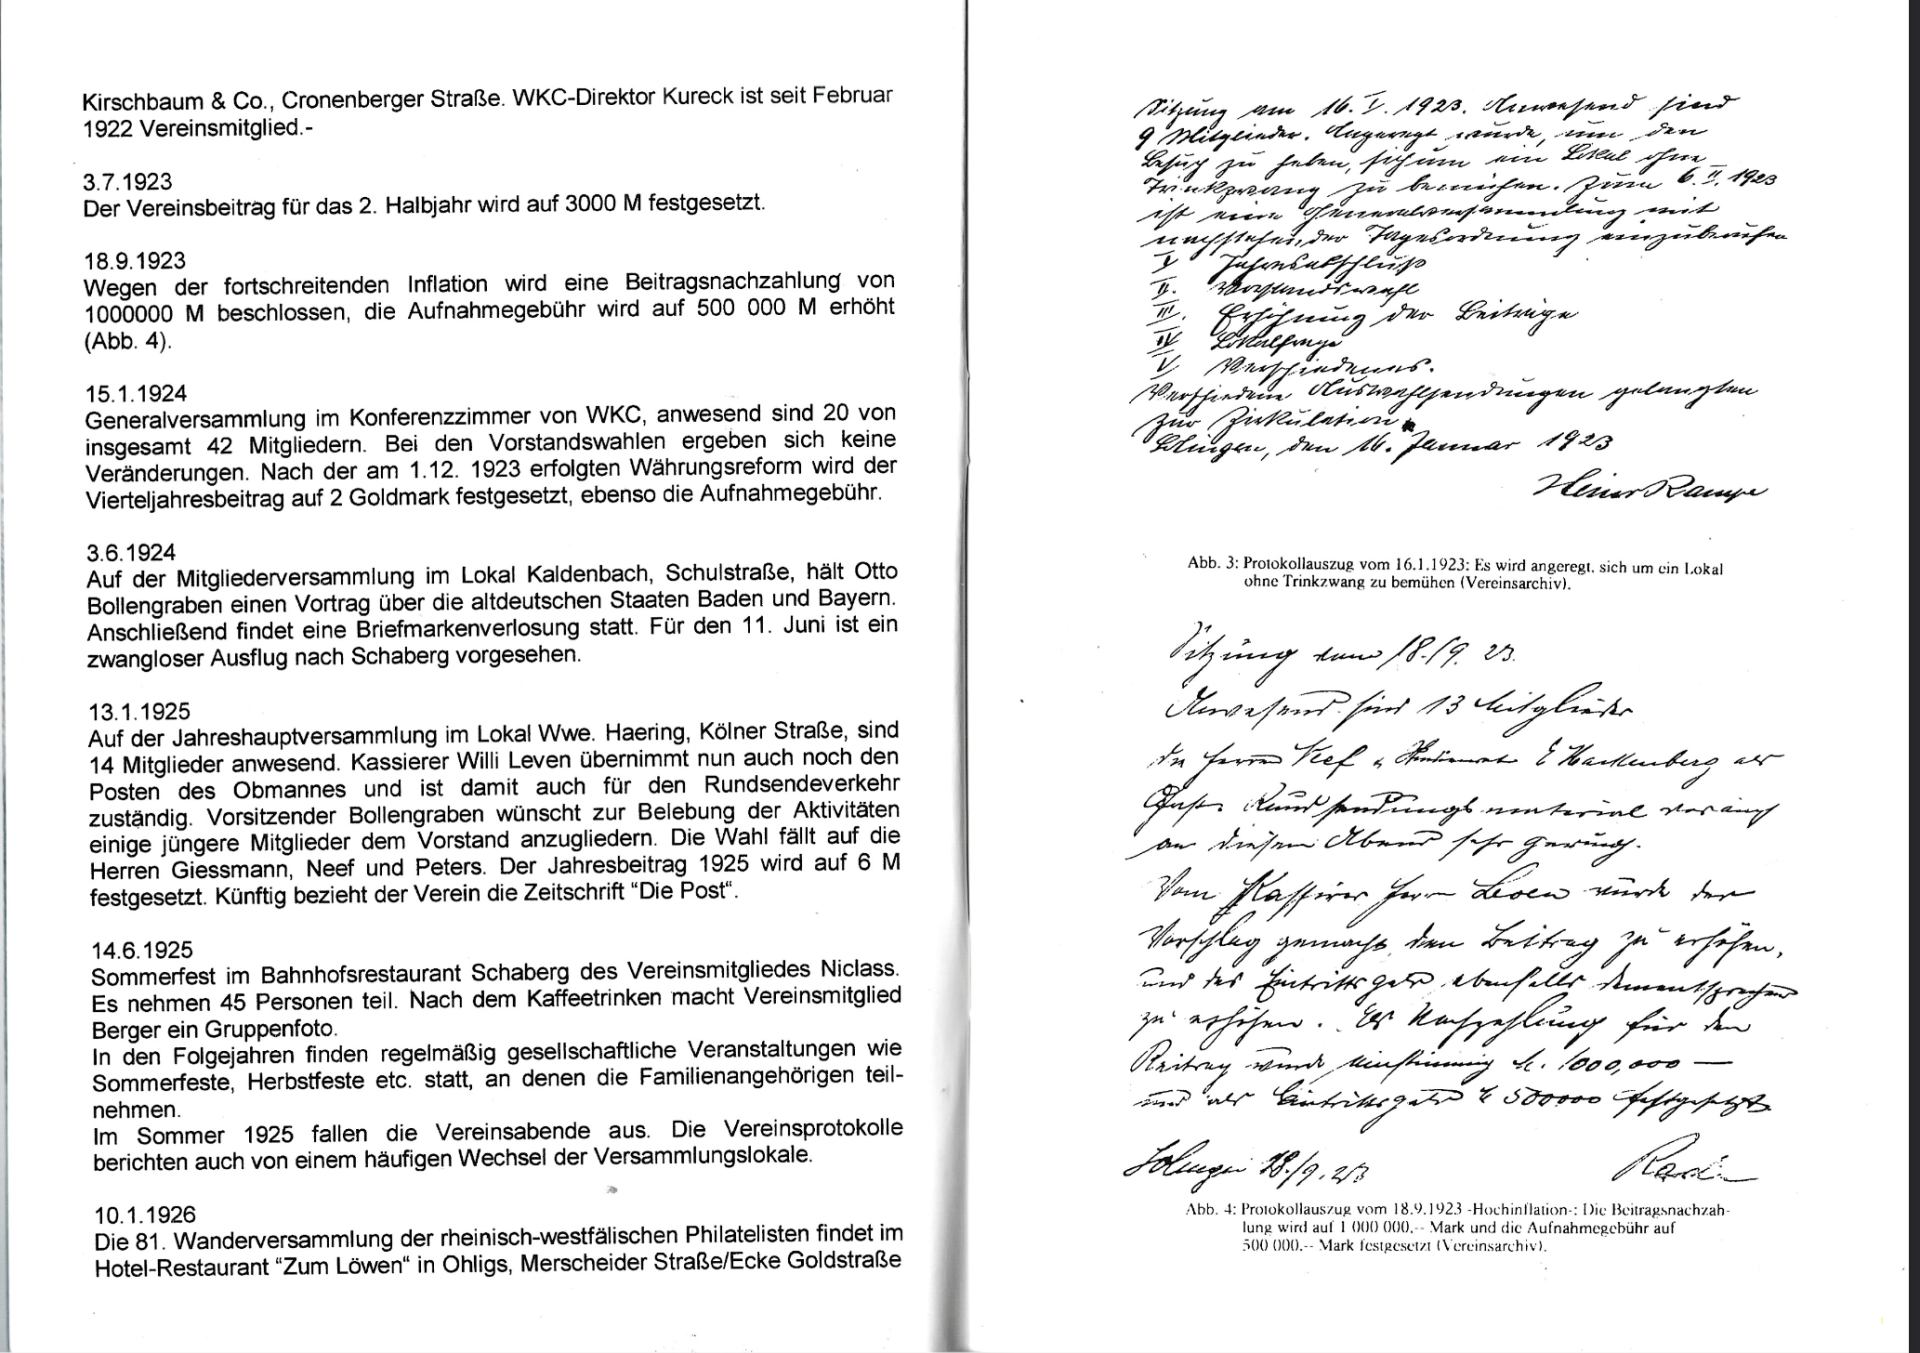 Kirschbaum & Co., Cronenberger Straße. WKC-Direktor Kureck ist seit Februar
1922 Vereinsmitglied.-
3.7.1923
Der Vereinsbeitrag für das 2. Halbjahr wird auf 3000 M festgesetzt.
18.9.1923
Wegen der fortschreitenden Inflation wird eine Beitragsnachzahlung von
1000000 M beschlossen, die Aufnahmegebühr wird auf 500 000 M erhöht
(Abb. 4).
15.1.1924
Generalversammlung im Konferenzzimmer von WKC, anwesend sind 20 von
insgesamt 42 Mitgliedern. Bei den Vorstandswahlen ergeben sich keine
Veränderungen. Nach der am 1.12. 1923 erfolgten Währungsreform wird der
Vierteljahresbeitrag auf 2 Goldmark festgesetzt, ebenso die Aufnahmegebühr.
3.6.1924
Auf der Mitgliederversammlung im Lokal Kaldenbach, Schulstraße, hält Otto
Bollengraben einen Vortrag über die altdeutschen Staaten Baden und Bayern.
Anschließend findet eine Briefmarkenverlosung statt. Für den 11. Juni ist ein
zwangloser Ausflug nach Schaberg vorgesehen.
13.1.1925
Auf der Jahreshauptversammlung im Lokal Wwe. Haering, Kölner Straße, sind
14 Mitglieder anwesend. Kassierer Willi Leven übernimmt nun auch noch den
Posten des Obmannes und ist damit auch für den Rundsendeverkehr
zuständig. Vorsitzender Bollengraben wünscht zur Belebung der Aktivitäten
einige jüngere Mitglieder dem Vorstand anzugliedern. Die Wahl fällt auf die
Herren Giessmann, Neef und Peters. Der Jahresbeitrag 1925 wird auf 6 M
festgesetzt. Künftig bezieht der Verein die Zeitschrift “Die Post“.
14.6.1925
Sommerfest im Bahnhofsrestaurant Schaberg des Vereinsmitgliedes Niclass.
Es nehmen 45 Personen teil. Nach dem Kaffeetrinken macht Vereinsmitglied
Berger ein Gruppenfoto.
In den Folgejahren finden regelmäßig gesellschaftliche Veranstaltungen wie
Sommerfeste, Herbstfeste etc. statt, an denen die Familienangehörigen teil-
nehmen.
Im Sommer 1925 fallen die Vereinsabende aus. Die Vereinsprotokolle
berichten auch von einem häufigen Wechsel der Versammlungslokale.
10.1.1926
Die 81. Wanderversammlung der rheinisch-westfälischen Philatelisten findet im
Hotel-Restaurant “Zum Löwen“ in Ohligs, Merscheider Straße/Ecke Goldstraße
Sitzung am 16. I. 1923. Anwesend sind
9 Mitglieder. Angeregt wurde, um den
Besuch zu heben, sich um ein Lokal ohne
Trinkzwang zu bemühen. Zum 6. II. 1923
ist eine Generalversammlung mit
nachstehender Tagesordnung einzuberufen
I Jahresabschluß
II. Vorstandswahl
III. Erhöhung der Beiträge
IV Lokalfrage
V Verschiedenes.
Verschiedene Auswahlsendungen gelangten
zur Zirkulation.
Solingen, den 16. Januar 1923
Heiner Rampe
Abb. 3: Protokollauszug vom 16.1.1923: Es wird angeregt, sich um ein Lokal
ohne Trinkzwang zu bemühen (Vereinsarchiv).
Sitzung vom 18./9. 23.
Anwesend sind 13 Mitglieder
die Herren E Hackenberg als
Gäste Rundsendungsmaterial war auch
an diesem Abend sehr gering.
Vom Kassierer Herrn Leven wurde der
Vorschlag gemacht den Beitrag zu erhöhen,
und das Eintrittsgeld ebenfalls dementsprechend
zu erhöhen. Als Nachzahlung für den
Beitrag wurde einstimmig M. 1000,000 —
und als Eintrittsgeld M 500000 festgesetzt.
Solingen 18./9. 23
Abb. 4: Protokollauszug vom 18.9.1923 -Hochinflation-: Die Beitragsnachzah-
lung wird auf 1 000 000.-- Mark und die Aufnahmegebühr auf
500 000.-- Mark festgesetzt (Vereinsarchiv).